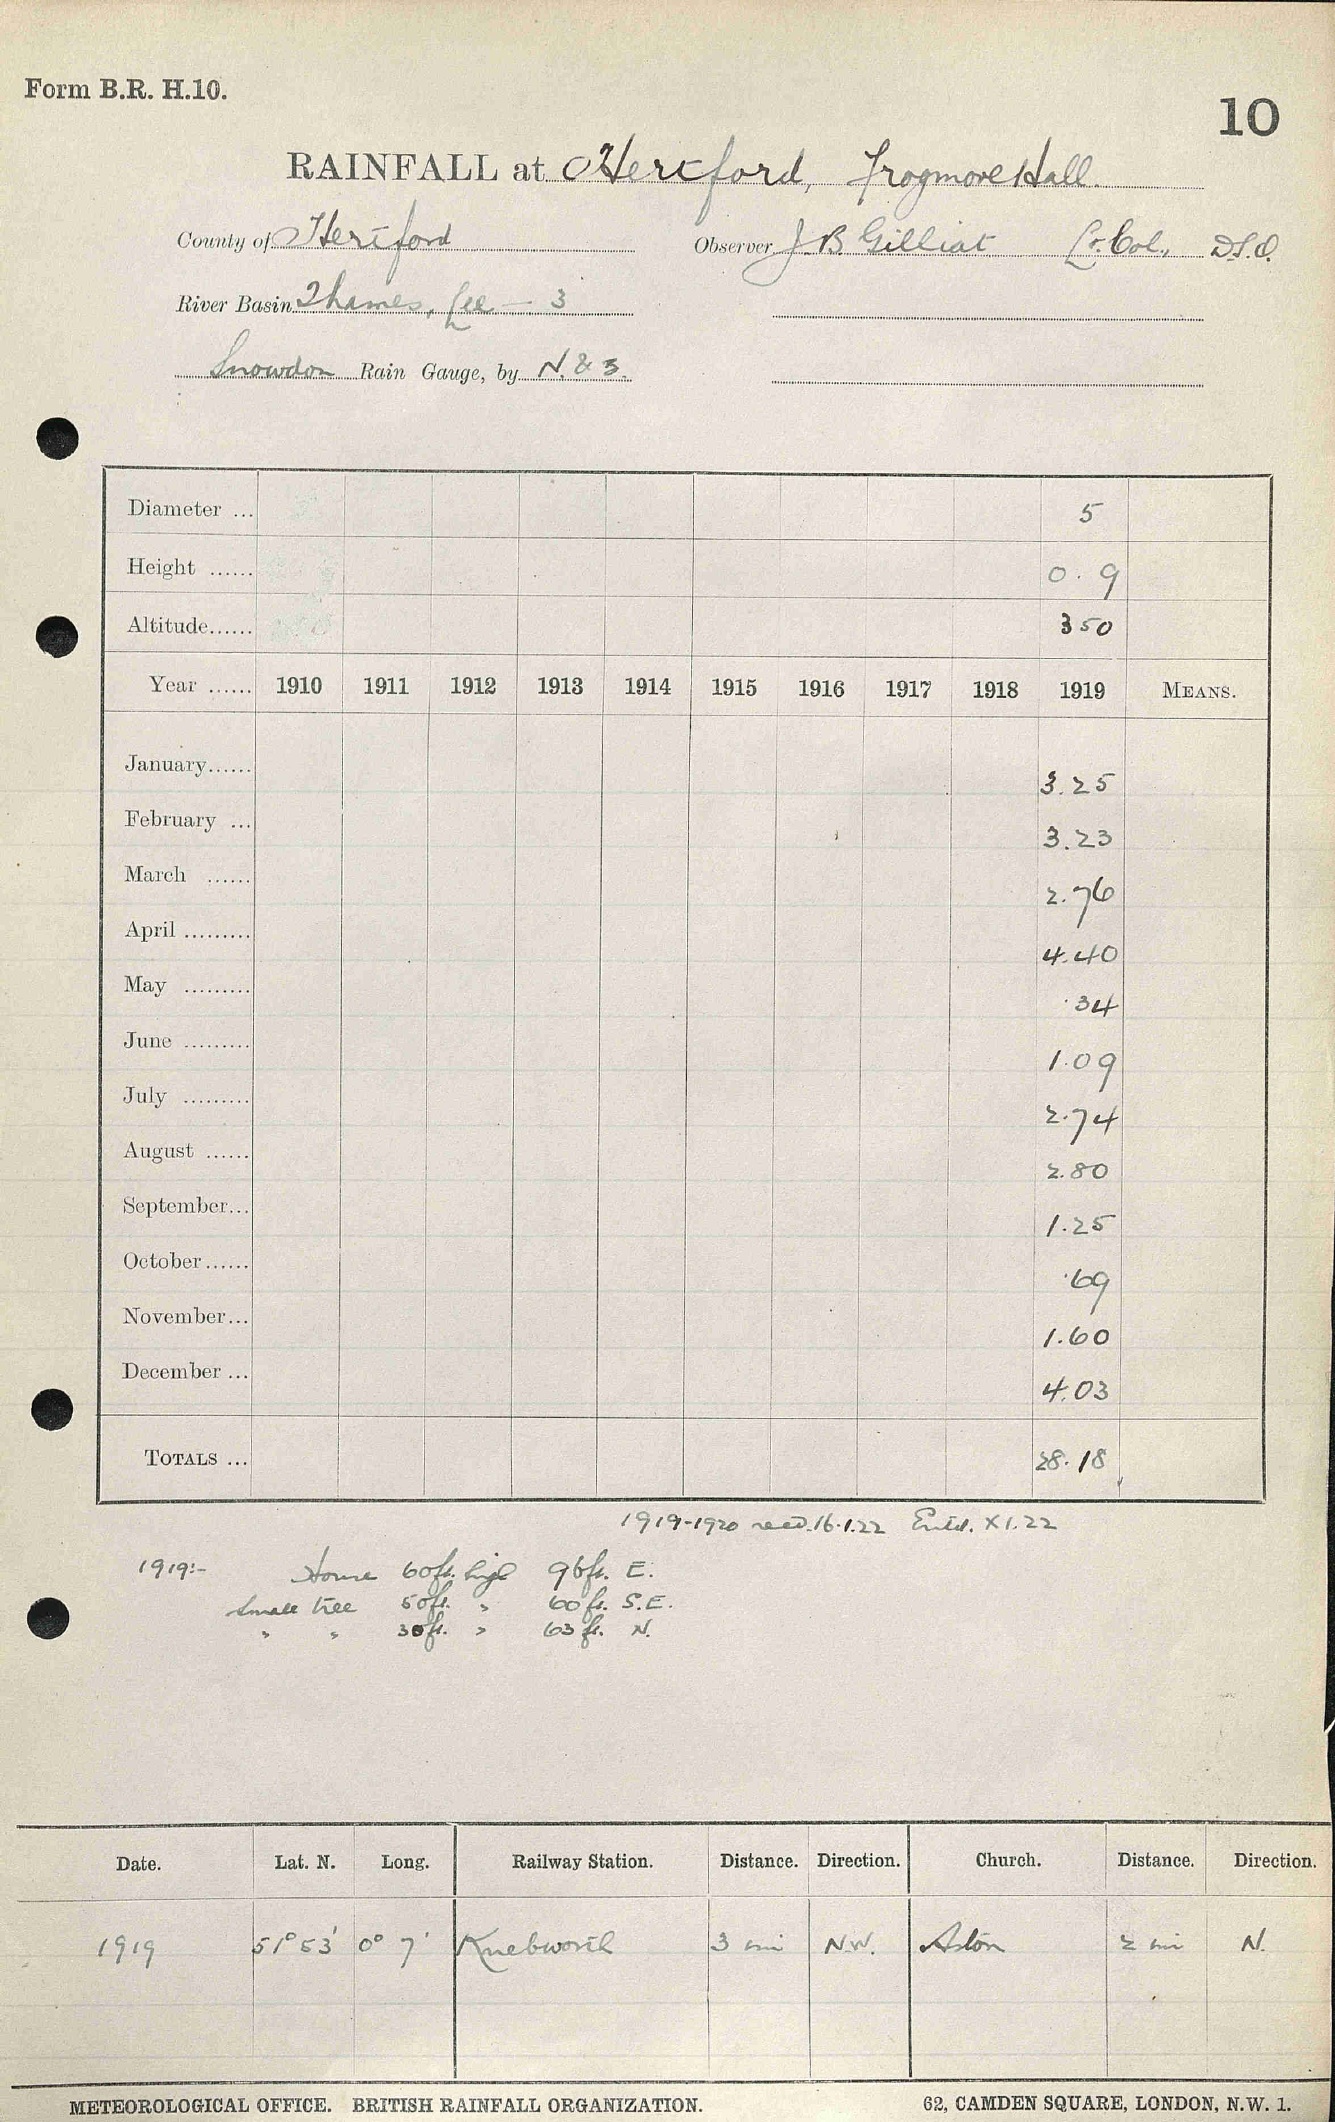 Form B.R. H.10.
10
RAINFALL at Hertford, Frogmore Hall.
County of Hertford Observer J. B. Gilliat Lt. Col., D.S.O.
River Basin Thames, Lee — 3
Snowdon Rain Gauge, by N. & Z.
Diameter ... 5
Height ...... 0. 9
Altitude...... 350
Year ...... 1910 1911 1912 1913 1914 1915 1916 1917 1918 1919 MEANS.
January...... 3.25
February ... 3.23
March ...... 2.76
April ......... 4.40
May ......... .34
June ......... 1.09
July ......... 2.74
August ...... 2.80
September... 1.25
October...... .69
November... 1.60
December ... 4.03
TOTALS ... 28.18
1919-1920 recd. 16.1.22 Entd. X1.22
1919:- House 60ft. high 96ft. E.
Small tree 50ft. " 60ft. S.E.
" " 30ft. " 63ft. N.
Date. Lat. N. Long. Railway Station. Distance. Direction. Church. Distance. Direction.
1919 51° 53' 0° 7' Knebworth 3 mi N.W. Aston 2 mi N.
METEOROLOGICAL OFFICE. BRITISH RAINFALL ORGANIZATION. 62, CAMDEN SQUARE, LONDON, N.W. 1.